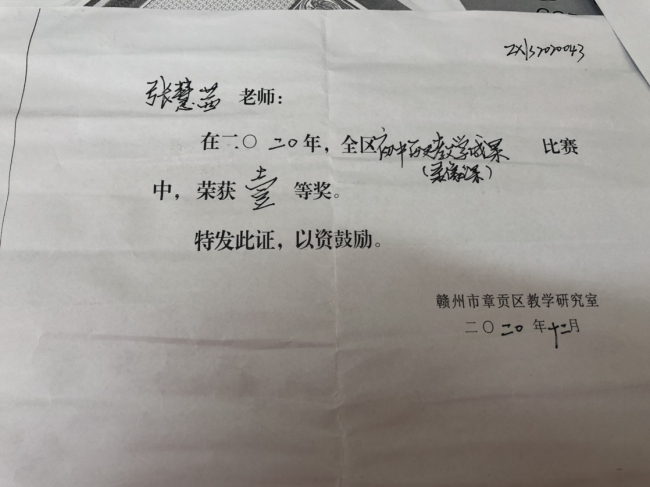 ZXLS2020043
张慧茜 老师：
在二〇二〇年，全区初中历史教学成果 比赛
（录像课）
中，荣获 壹 等奖。
特发此证，以资鼓励。
赣州市章贡区教学研究室
二〇二〇年十二月